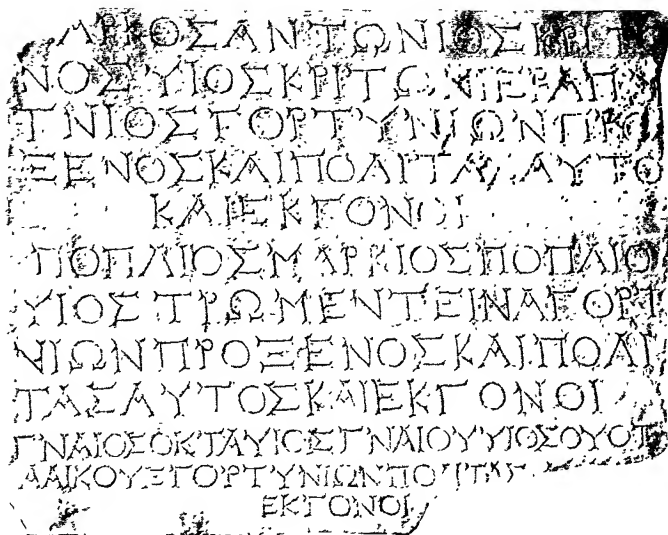 ΜΑΡΚΟΣΑΝΤΩΝΙΟΣΚΡΙΤΩ
ΝΟΣΥΙΟΣΚΡΙΤΩΝΙΕΡΑΠΥ
ΤΝΙΟΣΓΟΡΤΥΝΙΩΝΠΡΟ
ΞΕΝΟΣΚΑΙΠΟΛΙΤΑΣΑΥΤΟ
ΚΑΙΕΚΓΟΝΟΙ
ΠΟΠΛΙΟΣΜΑΡΚΙΟΣΠΟΠΛΙΟ
ΥΙΟΣΤΡΩΜΕΝΤΕΙΝΑΓΟΡΤ
ΝΙΩΝΠΡΟΞΕΝΟΣΚΑΙΠΟΛΙ
ΤΑΣΑΥΤΟΣΚΑΙΕΚΓΟΝΟΙ
ΓΝΑΙΟΣΟΚΤΑΥΙΟΣΓΝΑΙΟΥΥΙΟΣΟΥΟΤ
ΓΟΡΤΥΝΙΩΝΠΟΛΙΤΑΣ
ΕΚΓΟΝΟΙ